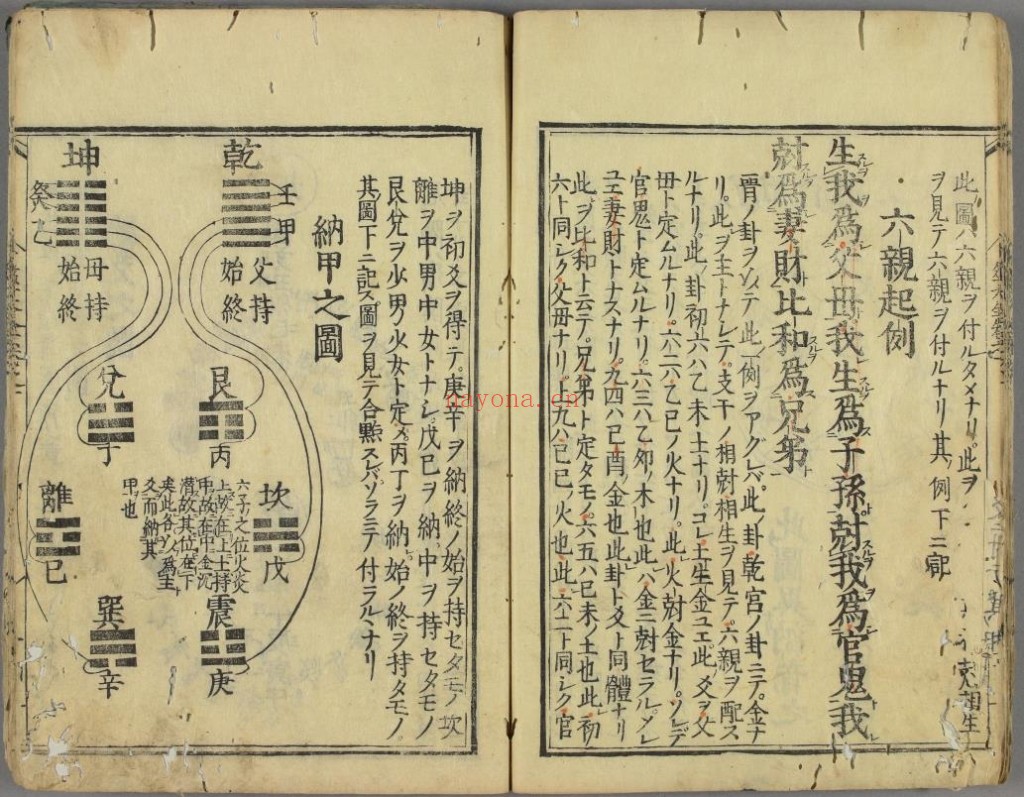 此ノ圖ハ六親ヲ付ルタメナリ此ヲ
ヲ見テ六親ヲ付ルナリ其ノ例下ニ
六親起例
生我為父母我生為子孫尅我為官鬼我
尅為妻財比和為兄弟
晋ノ卦ヲ以テ此ノ一例ヲアグレバ此ノ卦乾宮ノ卦ニテ金ナ
リ此ヲ主トナシテ支干ノ相尅相生ヲ見テ六親ヲ配ス
ルナリ此ノ卦初六ハ乙未土ナリコレ土生金ユエ此ノ爻ヲ父
母ト定ムルナリ六二ハ乙巳ノ火ナリ此ノ火尅金ナリソレデ
官鬼ト定ムルナリ六三ハ乙卯ノ木也此ハ金ニ尅セラルヽ
ユエ妻財トナスナリ九四ハ己酉ノ金也此卦ト爻ト同體ナリ
此ヲ比和ト云テ兄弟ト定タモノ六五ハ己未ノ土也此ノ初
六ト同シク父母ナリ上九ハ己巳ノ火也此ノ六二ト同シク官
坤ヲ初爻ヲ得テ庚辛ヲ納終ノ始ヲ持セタモノ坎
離ヲ中男中女トナシ戊己ヲ納中ヲ持セタモノ
艮兌ヲ少男少女ト定メ丙丁ヲ納始ノ終ヲ持タモノ
其圖下ニ記ス圖ヲ見テ合點スレバソラニテ付ラルヽナリ
納甲之圖
乾
壬甲
父持
始終
坤
癸乙
母持
始終
艮
丙
兌
丁
坎
戊
離
己
震
庚
巽
辛
六子之位火炎
上故在上土持
中故在中金沉
潛故其位在下
矣此各以為主
爻而納其
甲也
nayona.cn